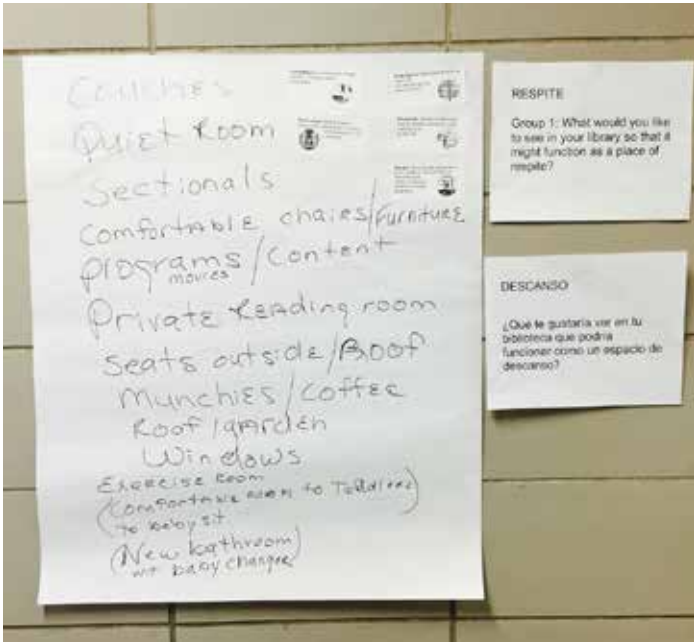 Couches
Quiet Room
Sectionals
Comfortable chairs/Furniture
programs/Content
movies
Private Reading room
Seats outside/Roof
Munchies/Coffee
Roof/garden
Windows
Exercise Room
(Comfortable room to Toddlers
to babysit)
(New bathroom
wit baby changer)
RESPITE
Group 1: What would you like
to see in your library so that it
might function as a place of
respite?
DESCANSO
¿Qué te gustaría ver en tu
biblioteca que podría
funcionar como un espacio de
descanso?